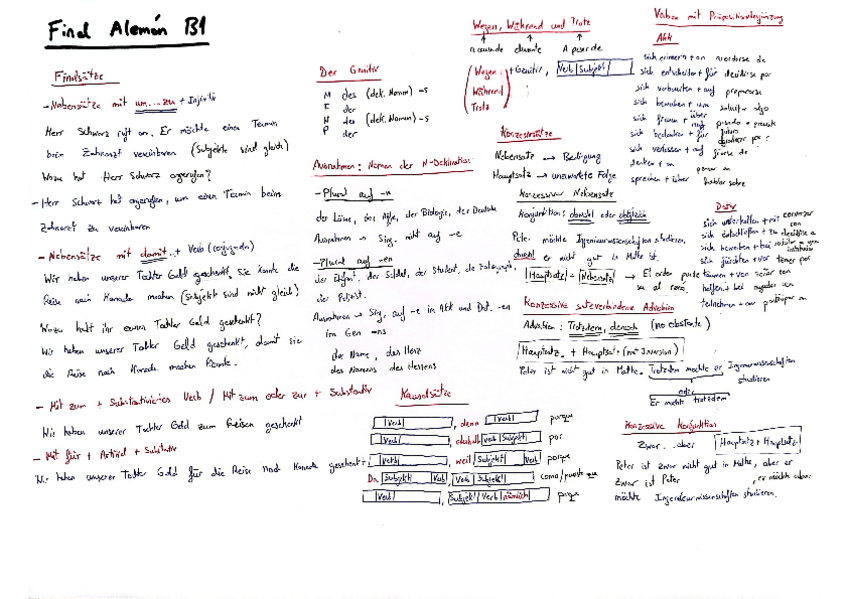 Final Alemán B1
Finalsätze
- Nebensätze mit um....zu + Infinitiv
Herr Schwarz ruft an. Er möchte einen Termin
beim Zahnarzt vereinbaren (Subjekte sind gleich)
Wozu hat Herr Schwarz angerufen?
- Herr Schwarz hat angerufen, um einen Termin beim
Zahnarzt zu vereinbaren
- Nebensätze mit damit...+ Verb (conjugado)
Wir haben unserer Tochter Geld geschenkt. Sie konnte die
Reise nach Kanada machen (Subjekte sind nicht gleich)
Wozu habt ihr eurer Tochter Geld geschenkt?
Wir haben unserer Tochter Geld geschenkt, damit sie
die Reise nach Kanada machen konnte.
- Mit zum + Substantiviertes Verb / Mit zum oder zur + Substantiv
Wir haben unserer Tochter Geld zum Reisen geschenkt
- Mit für + Artikel + Substantiv
Wir haben unserer Tochter Geld für die Reise nach Kanada geschenkt.
Der Genitiv
M des (dek. Nomen) -s
F der
N des (dek. Nomen) -s
P der
Ausnahmen: Nomen der N-Deklination
- Plural auf -n
der Löwe, der Affe, der Biologe, der Deutsche
Ausnahmen → Sing. nicht auf -e
- Plural auf -en
der Soldat, der Student, der Fotograph,
der Polizist.
Ausnahmen → Sing. auf -e in Akk und Dat. -en
im Gen -ns
der Name, das Herz
des Namens des Herzens
Kausalsätze
Verb , denn Verb porque
Verb , deshalb Verb Subjekt por
Verb , weil Subjekt Verb porque
Da Subjekt Verb , Verb Subjekt como/puesto que
Verb , Subjekt Verb nämlich porque
Wegen, Während und Trotz
a causa de durante A pesar de
Wegen + Genitiv, Verb Subjekt
Während
Trotz
Konzessivsätze
Nebensatz → Bedingung
Hauptsatz → unerwartete Folge
Konzessiver Nebensatz
Konjunktion: obwohl oder obgleich
Peter möchte Ingenieurwissenschaften studieren,
obwohl er nicht gut in Mathe ist.
Hauptsatz + Nebensatz → El orden puede
ser al revés
Konzessive satzverbindende Adverbien
Adverbien: Trotzdem, dennoch (no obstante)
Hauptsatz + Hauptsatz (mit Inversion)
Peter ist nicht gut in Mathe. Trotzdem möchte er Ingenieurwissenschaften
studieren
oder
Er möchte trotzdem
Konzessive Konjunktion
Zwar...aber Hauptsatz + Hauptsatz
Peter ist zwar nicht gut in Mathe, aber er
Zwar ist Peter , er möchte aber
möchte Ingenieurwissenschaften studieren.
Verben mit Präpositionalergänzung
Akk
sich erinnern + an acordarse de
sich entscheiden + für decidirse por
sich vorbereiten + auf prepararse
sich bewerben + um solicitar algo
sich freuen + über
auf pasado o presente
futuro
sich bedanken + für agradecer por
sich verlassen + auf fiarse de
denken + an pensar en
sprechen + über hablar sobre
Dativ
sich unterhalten + mit conversar con
sich entschließen + zu decidirse a
sich bewerben + bei
sich fürchten + vor temer por
träumen + von soñar con
helfen + bei ayudar con
teilnehmen + an participar en